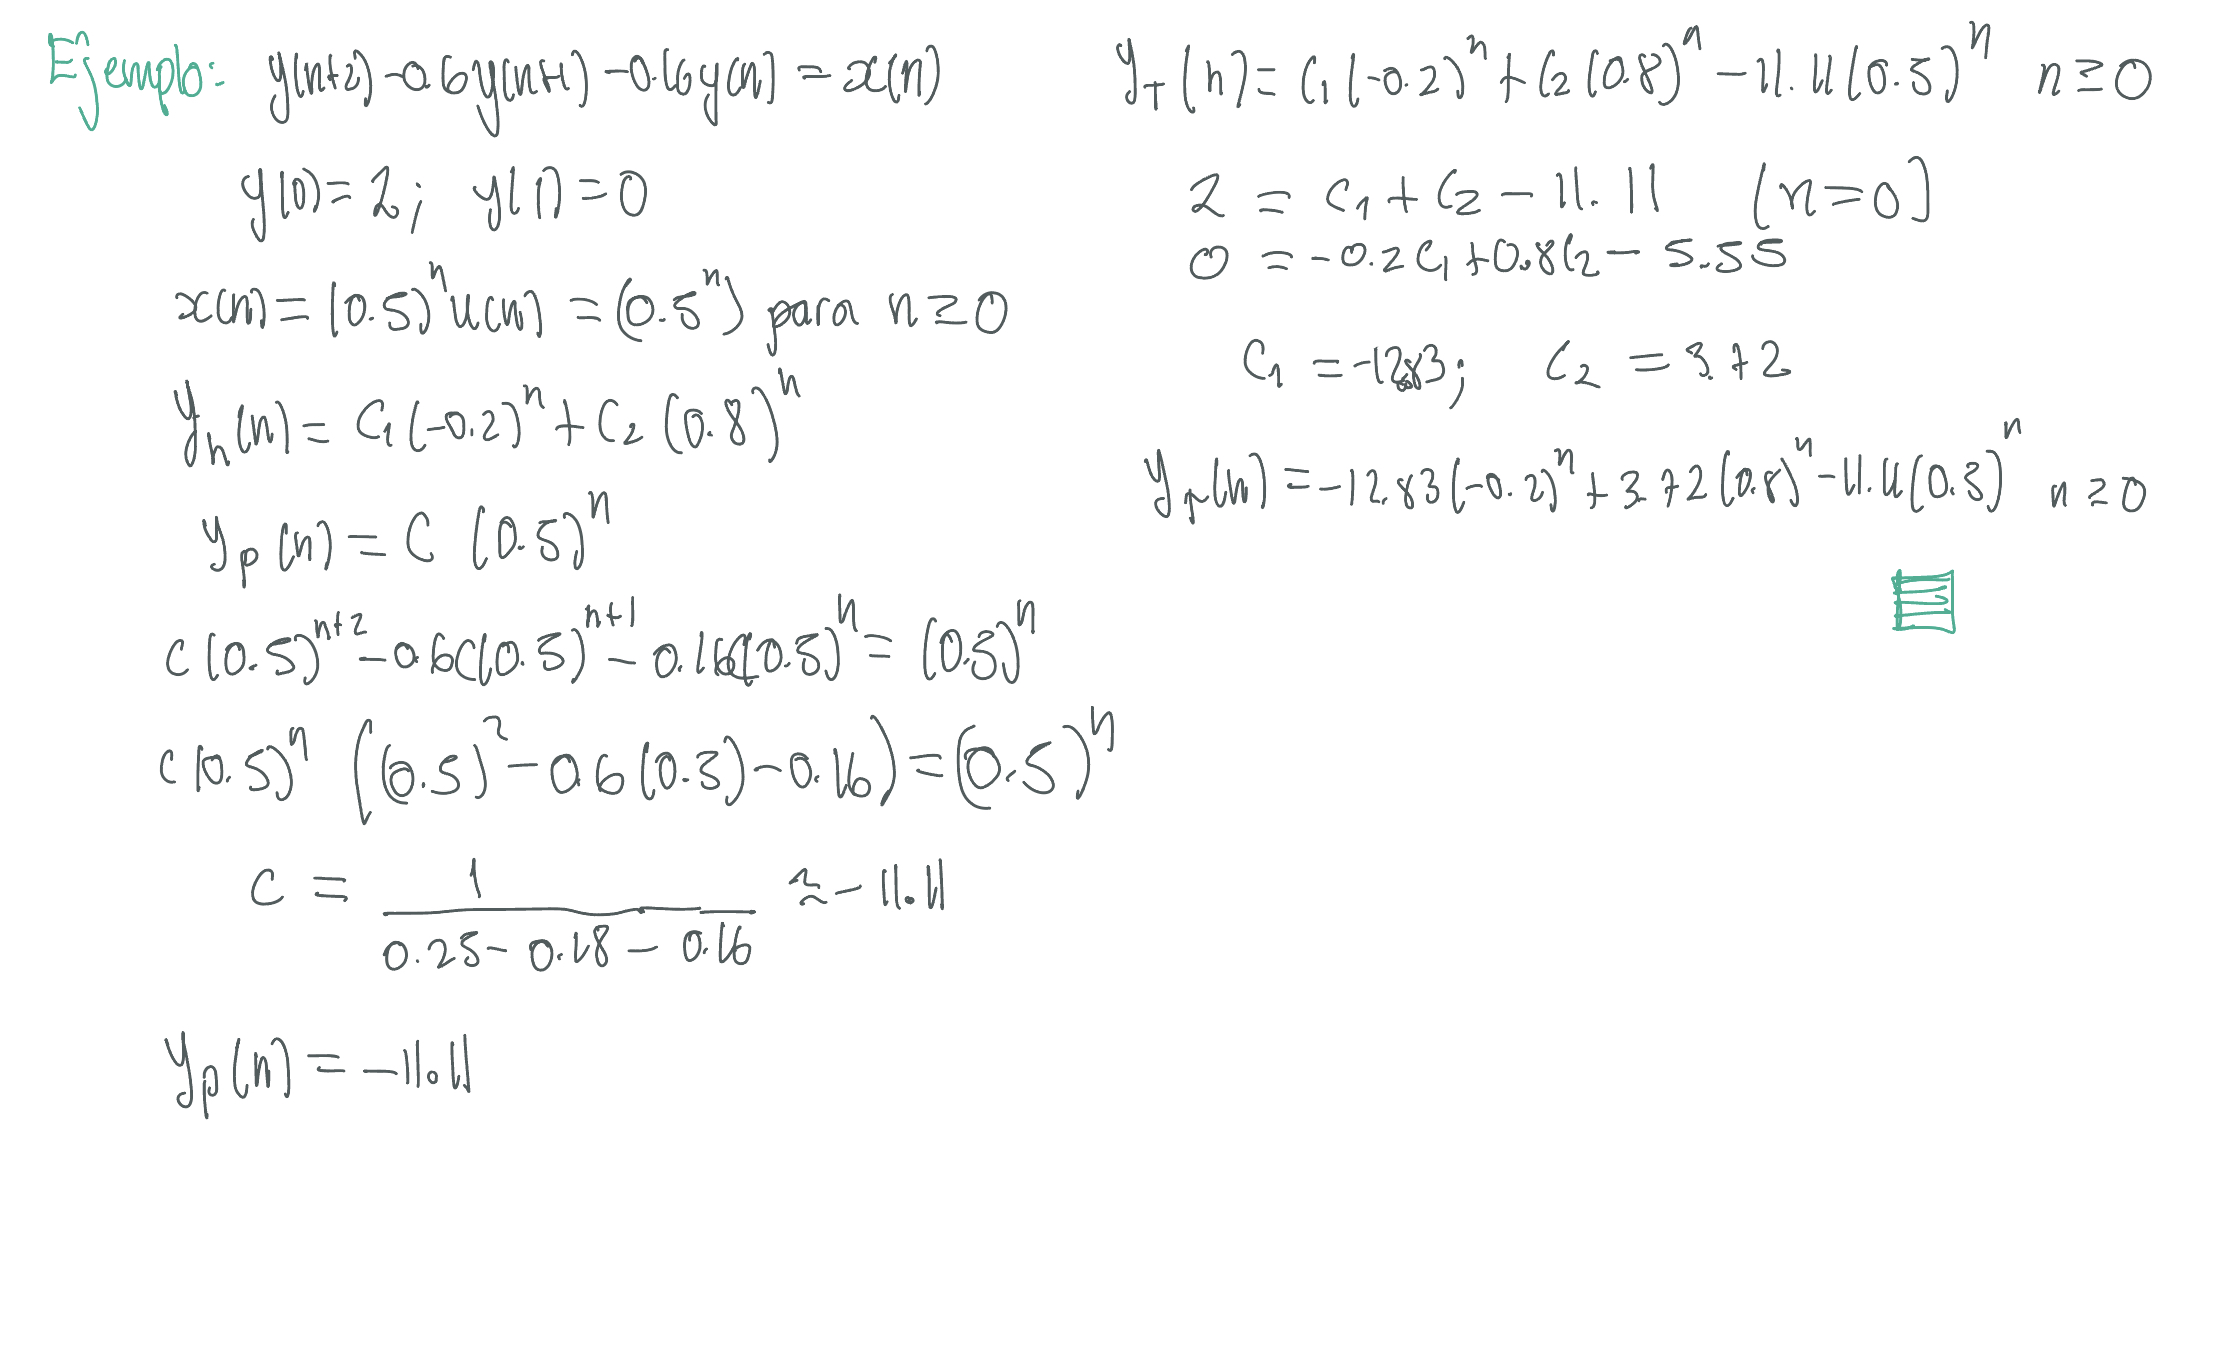 Ejemplo: y(n+2) - 0.6y(n+1) - 0.16y(n) = x(n)
y(0) = 2; y(1) = 0
x(n) = (0.5)^n u(n) = (0.5^n) para n ≥ 0
y_h(n) = C_1(-0.2)^n + C_2(0.8)^n
y_p(n) = C (0.5)^n
C(0.5)^{n+2} - 0.6C(0.5)^{n+1} - 0.16C(0.5)^n = (0.5)^n
C(0.5)^n ((0.5)^2 - 0.6(0.5) - 0.16) = (0.5)^n
C = 1 / (0.25 - 0.18 - 0.16) ≈ -11.11
y_p(n) = -11.11
y_T(n) = C_1(-0.2)^n + C_2(0.8)^n - 11.11(0.5)^n n ≥ 0
2 = C_1 + C_2 - 11.11 (n=0)
0 = -0.2C_1 + 0.8C_2 - 5.55
C_1 = -12.83; C_2 = 3.72
y_T(n) = -12.83(-0.2)^n + 3.72(0.8)^n - 11.11(0.5)^n n ≥ 0